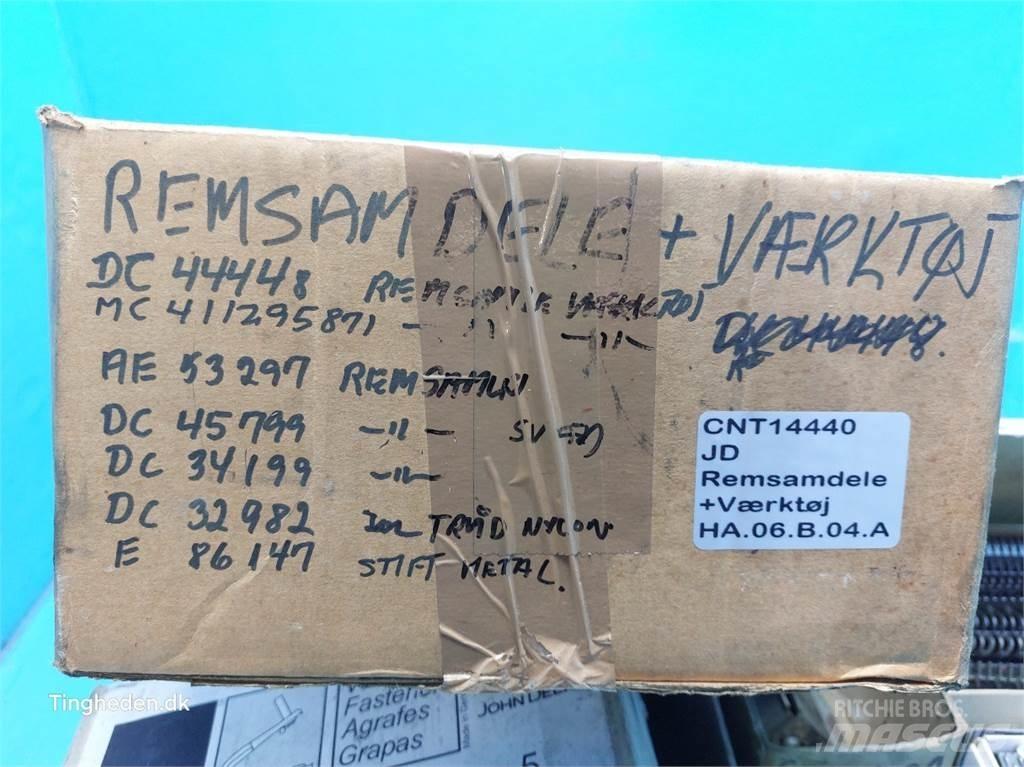 REMSAMDELE + VÆRKTØJ
DC 44448 REMSAMLE VÆRKTØJ
MC 411295871 -"- -"-
AE 53297 REMSAMLER
DC 45799 -"-
DC 34199 -"-
DC 32982 TRÅD NYLON
E 86147 STIFT METAL.
CNT14440
JD
Remsamdele
+Værktøj
HA.06.B.04.A
Tingheden.dk
Agrafes
Grapas
Made in
5
RITCHIE BROS
Mascus